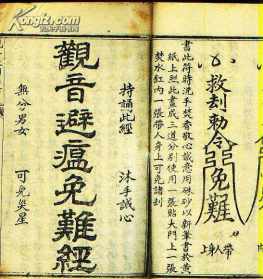 救刼勅令
免難
帶人身上
書此符時洗手焚香敬心誠意用硃砂以新筆書於黃
紙上照此畫成三道分別使用一張貼大門上一張
焚水缸內一張帶人身上可免諸刦
持誦此經 沐手誠心
觀音避瘟免難經
無分男女 可免災星